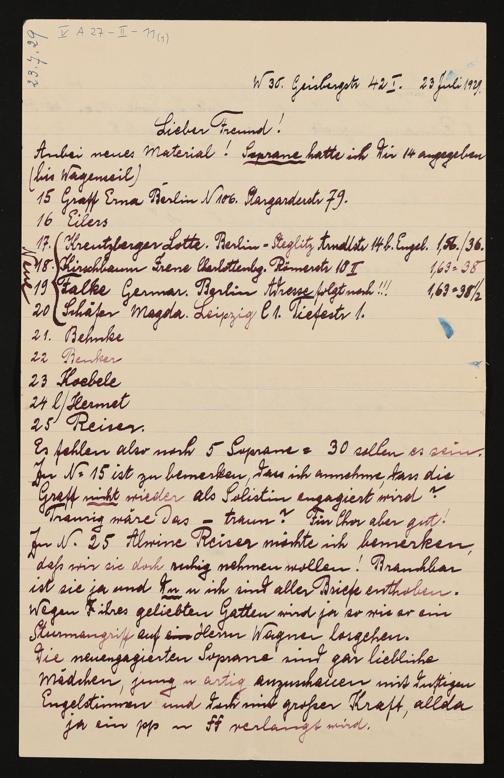 23.7.29
IV A 27 – II – 11(1)
W 30. Geisbergstr 42 I. 23 Juli 1929.
Lieber Freund!
Anbei neues Material! Soprane hatte ich Dir 14 angegeben
(bis Wagemeil)
15 Graff Erna Berlin N 106. Stargarderstr 79.
16 Eilers
Neue
17. Kreutzberger Lotte. Berlin - Steglitz Arndtstr 14 b. Engel. 1,56./36.
18. Kirschbaum Irene Charlottenbg. Römerstr 10 II 1,63 = 38
19 Falke Germar. Berlin Adresse folgt noch!!! 1,63 = 38/2
20 Schäfer Magda. Leipzig C 1. Tiefestr 1.
21. Behnke
22 Benker
23 Koebele
24 Hermet
25 Reiser.
Es fehlen also noch 5 Soprane = 30 sollen es sein.
Zu N= 15 ist zu bemerken, dass ich annehme, dass die
Graff nicht wieder als Solistin engagiert wird?
Traurig wäre das – traun? Für Chor aber gut!
Zu N. 25 Alwine Reiser möchte ich bemerken,
daß wir sie doch ruhig nehmen wollen! Brauchbar
ist sie ja und Du u ich sind aller Briefe enthoben.
Wegen ihres geliebten Gatten wird ja so wie so ein
Sturmangriff auf Herrn Wagner losgehen.
Die neuengagierten Soprane sind gar liebliche
Mädchen, jung u artig anzuschauen mit duftigen
Engelstimmen und doch mit großer Kraft, allda
ja ein pp u ff verlangt wird.